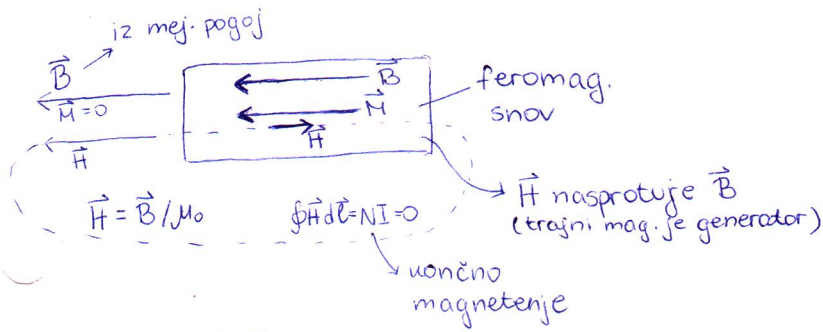 iz mej. pogoj
B⃗
M⃗=0
H⃗
B⃗
M⃗
H⃗
feromag.
snov
H⃗ = B⃗/μ₀
∮H⃗dl⃗=NI=0
H⃗ nasprotuje B⃗
(trajni mag. je generator)
končno
magnetenje